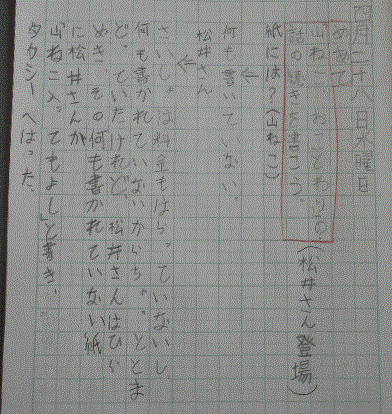 四月二十八日水曜日
めあて
「山ねこ、おことわり」の
話の続きを書こう。
(松井さん登場)
紙には?(山ねこ)
↓
何も書いていない。
松井さん
↓
さいしょは料金もはらっていないし、
何も書かれていないからち
ど、ていたけれど、松井さんはひら
めき、その何も書かれていない紙
に松井さんが
「山ねこ入ってもよし」と書き、
タクシーへはった。